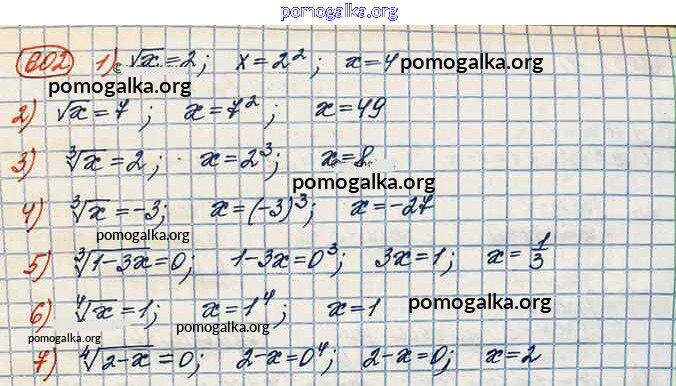 pomogalka.org
602 1) √x = 2; x = 2²; x = 4 pomogalka.org
pomogalka.org
2) √x = 7; x = 7²; x = 49
3) ∛x = 2; x = 2³; x = 8
pomogalka.org
4) ∛x = -3; x = (-3)³; x = -27
pomogalka.org
5) ∛(1-3x) = 0; 1-3x = 0³; 3x = 1; x = 1/3
6) ∜x = 1; x = 1⁴; x = 1 pomogalka.org
pomogalka.org
pomogalka.org
7) ∜(2-x) = 0; 2-x = 0⁴; 2-x = 0; x = 2